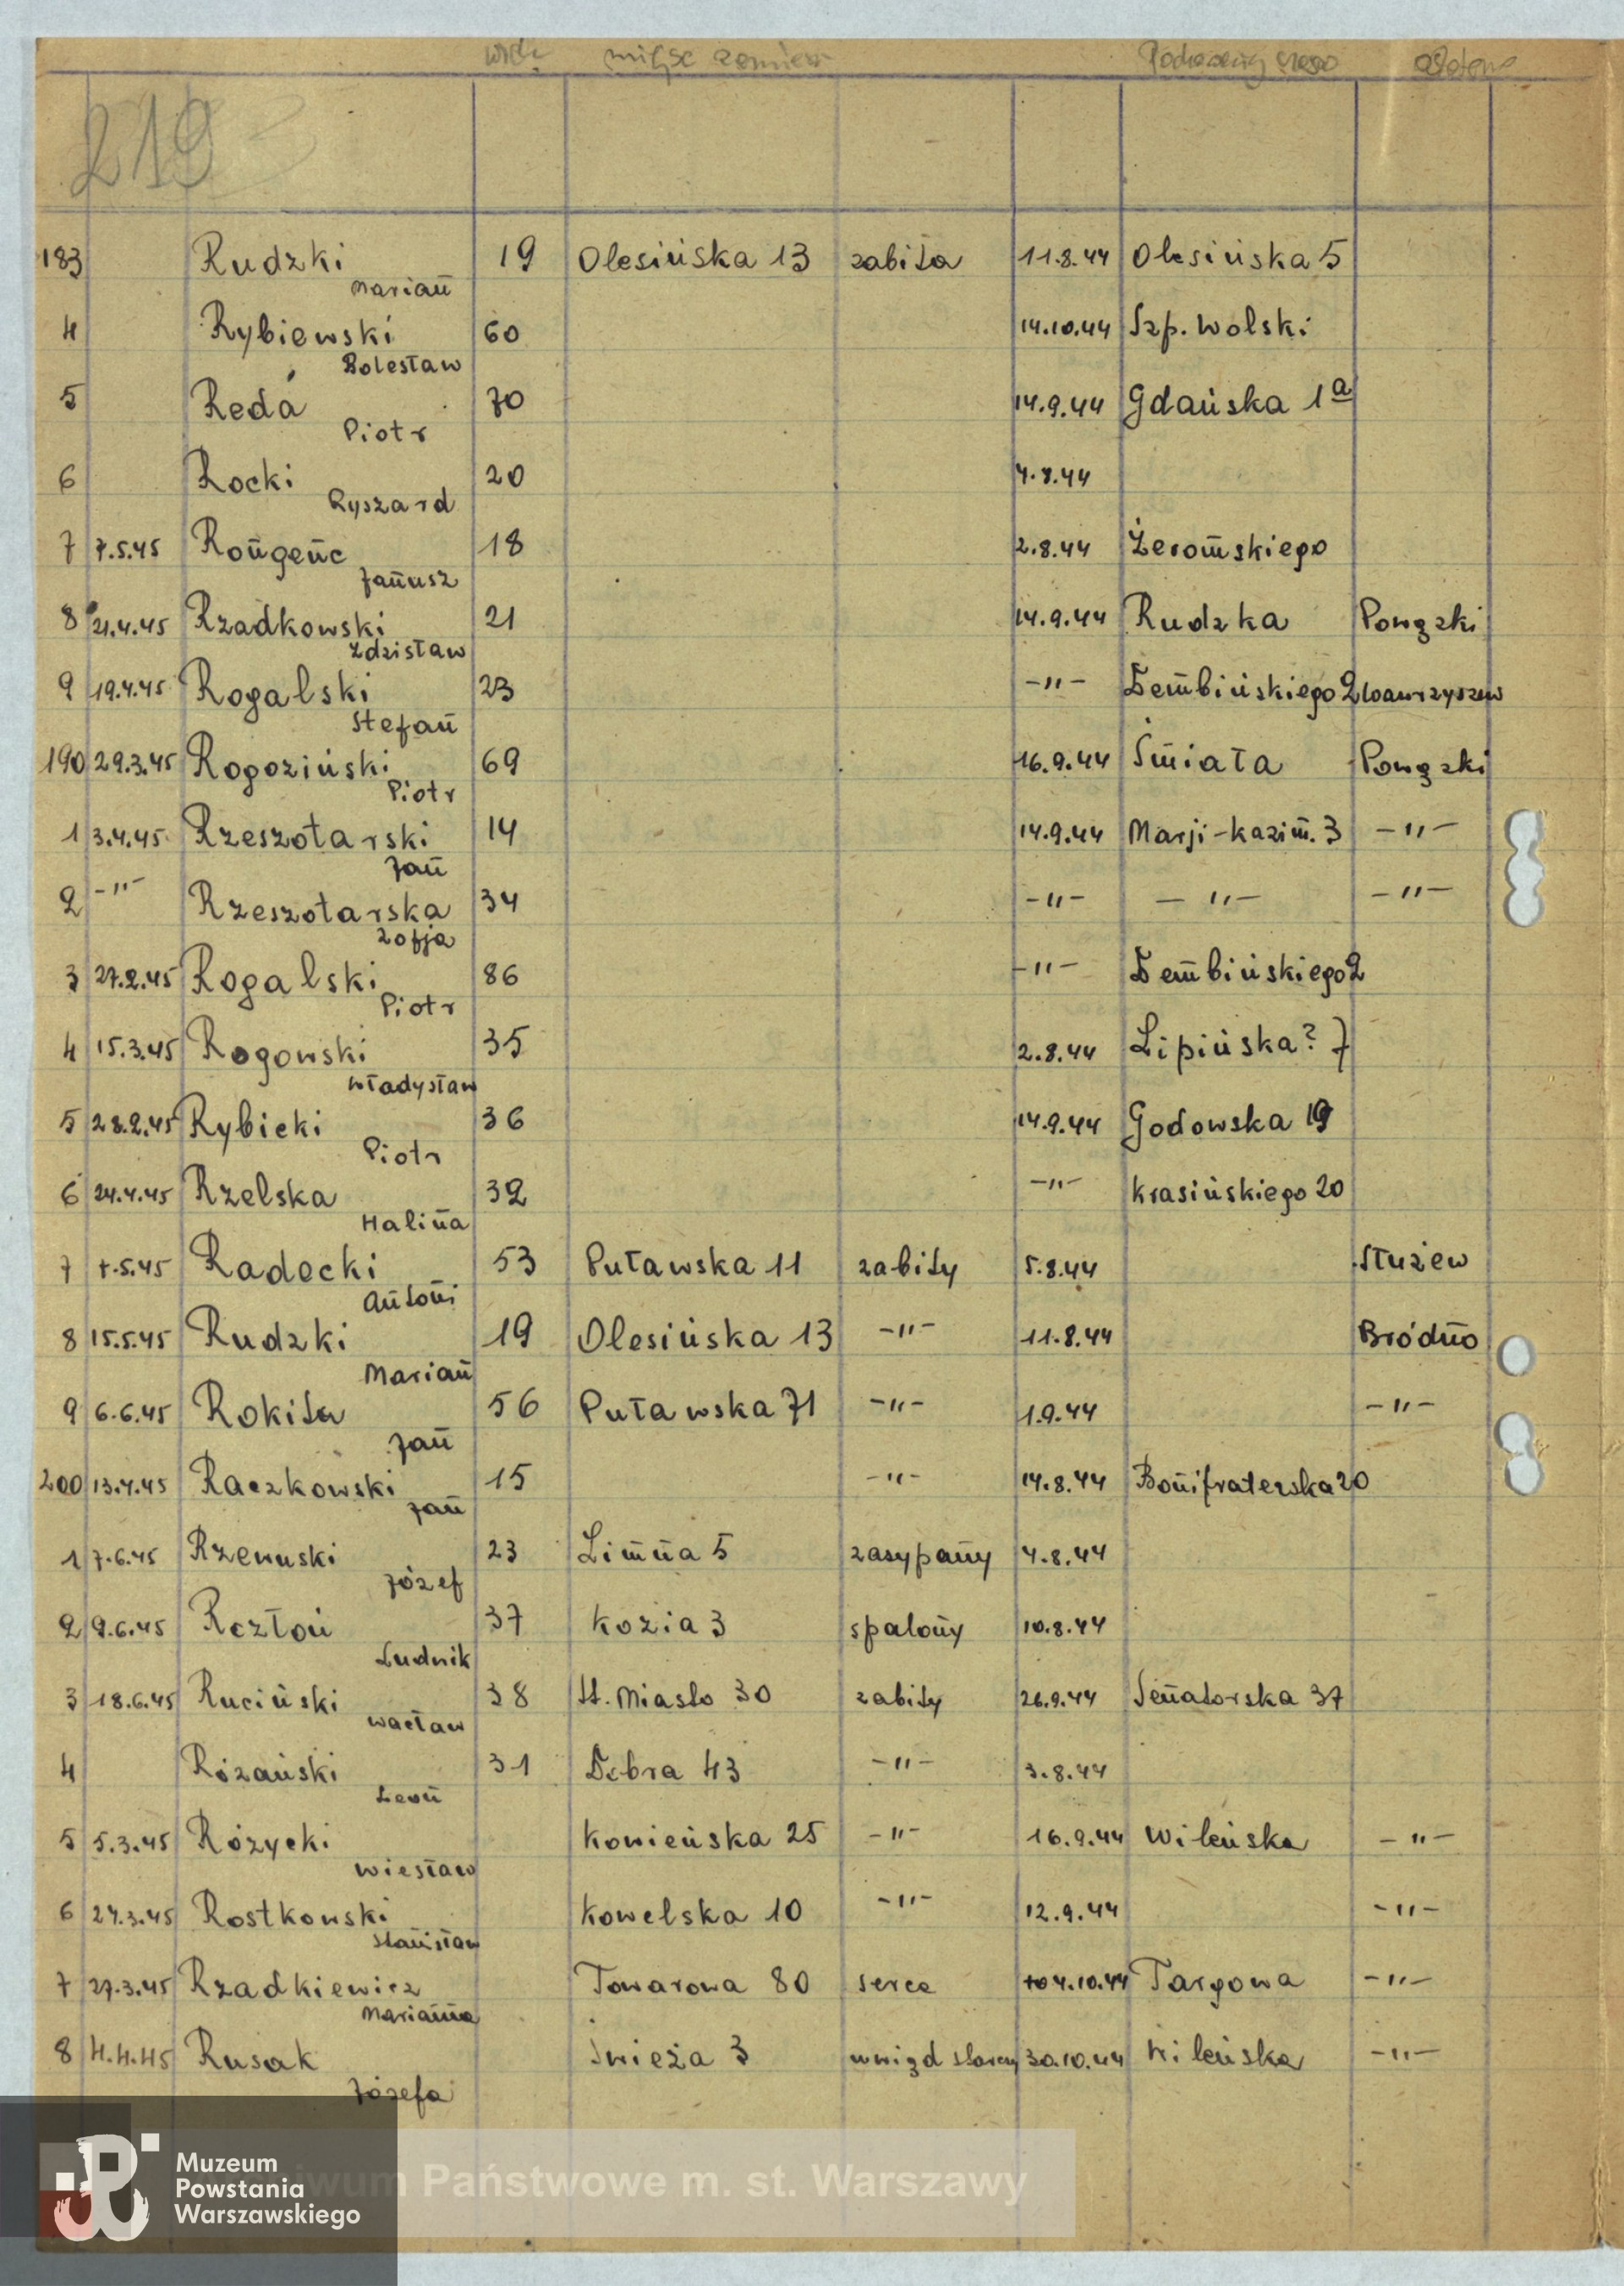 wiek miejsc zamiesz
219
183 Rudzki 19 Olesińska 13 zabita 11.8.44 Olesińska 5
Marian
4 Rybiewski 60 14.10.44 Szp. Wolski
Bolesław
5 Reda 70 14.9.44 Gdańska 1a
Piotr
6 Rocki 20
Ryszard
7 7.5.45 18 2.8.44 Żeromskiego
Janusz
8 21.4.45 Rzadkowski 21 14.9.44 Rudzka Powązki
Zdzisław
9 19.4.45 Rogalski 23 -"- Dembińskiego 2 Wawrzyszew
Stefan
190 29.3.45 Rogoziński 69 16.9.44 Śmiała Powązki
Piotr
1 3.4.45 Rzeszotarski 14 14.9.44 Marji-Kazim. 3 -"-
Jan
2 -"- Rzeszotarska 34 -"- -"- -"-
Zofja
3 27.2.45 Rogalski 86 -"- Dembińskiego 2
Piotr
4 15.3.45 Rogowski 35 2.8.44 Lipińska? 7
Władysław
5 28.2.45 Rybicki 36 14.9.44 Godowska 19
Piotr
6 24.4.45 Rzelska 32 -"- Krasińskiego 20
Halina
7 Radecki 53 Puławska 11 zabity 5.8.44 Służew
Antoni
8 15.5.45 Rudzki 19 Olesińska 13 -"- 11.8.44 Bródno
Marian
9 6.6.45 Rokita 56 Puławska 71 -"- 1.9.44 -"-
Jan
200 13.4.45 Raczkowski 15 -"- 14.8.44 Bonifraterska 20
Jan
1 7.6.45 Rzewuski 23 Zimna 5 zasypany 4.8.44
Józef
2 9.6.45 37 Kozia 3 spalony 10.8.44
Ludwik
3 18.6.45 Ruciński 38 St. Miasto 30 zabity 26.9.44 Senatorska 37
Wacław
4 Rózański 31 Dobra 43 -"- 3.8.44
Leon
5 5.3.45 Różycki Kowieńska 25 -"- 16.9.44 Wileńska -"-
Wiesław
6 27.3.45 Rostkowski Kowelska 10 -"- 12.9.44 -"-
Stanisław
7 27.3.45 Rzadkiewicz Towarowa 80 serce 4.10.44 Targowa -"-
Marianna
8 4.4.45 Rusak Świeża 3 uwiąd starczy 30.10.44 Wileńska -"-
Józefa
Muzeum
Powstania
Warszawskiego
iwum Państwowe m. st. Warszawy